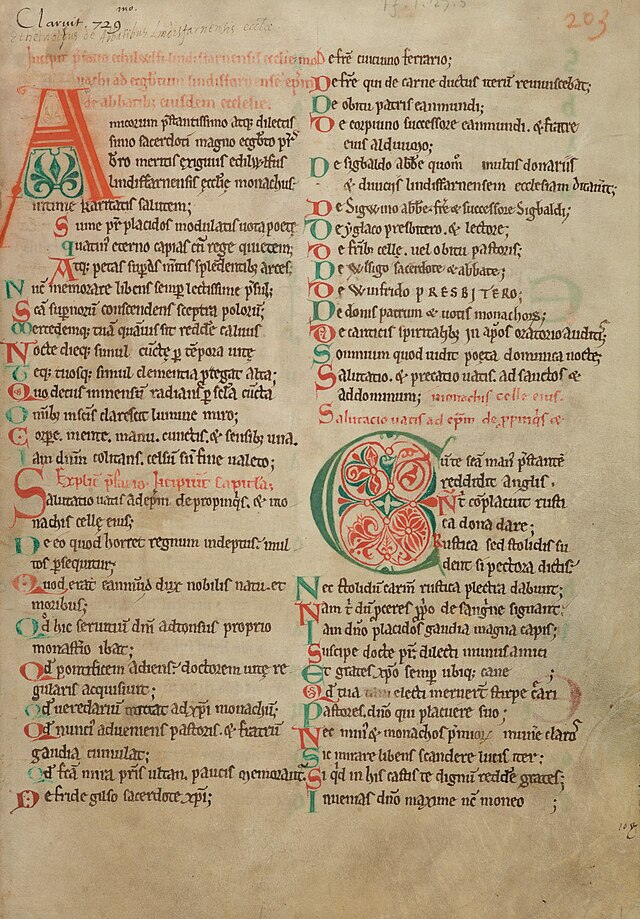 Claruit. 729 mo.
203
Incipit p̄fatio ediluulfi lindisfarnensis ecclesie mo
nachi ad ecgb̄tum lindisfarnensē ep̄m
de abbatib; eiusdem ecclesie.
Amicorum p̄stantissimo atq; dilectis
simo sacerdoti magno ecgb̄to pr̄s
b̄ro meritis exiguus ediluulfus
lindisfarnensis ecclīe monachus
intime karitatis salutem;
Sume pr̄ placidos modulatis uota poetę
quatin' eterno capias cū rege quietem;
Atq; petas supas mitis splēdentib; arces;
Nūc memorare libens semp lectissime p̄sul;
Scā supnorū conscendens sceptra polorū;
Mercedemq; tuā quāuis sit redde calnius
Nocte dieq; simul cūcte p tēpora uitę
Teq; tuosq; simul clementia p̄tegat alta;
Quo decus inmensū radians p secla cūcta
Omib; insciis clarescit lumine miro;
Corpe. mente. manu. cunctis. & sensib; una.
Iam dn̄m colitans. celsū sn̄ fine ualeto;
Explic̄ p̄fatio. Incipiunt Capitula;
Salutatio uatis ad ep̄m de propinq̄s. & mo
nachis cellę eius;
De eo quod horret regnum indeptus. mul
tos p̄sequitur;
Quod erat eanmūd dux nobilis natu. et
moribus;
Qd̄ hic seruitiū dn̄i adtonsus proprio
monastīo ibat;
Qd̄ pontificem adiens. doctorem uitę re
gularis acquisiuit;
Qd̄ ueredariū mittat ad xp̄i monachū;
Qd̄ nunci' adueniens pastoris. & fratrū
gaudia cumulat;
Qd̄ fcā mira pr̄is ultan. paucis memorauit.
De fride gilso sacerdote xp̄i;
De frē cuicuino ferrario;
De frē qui de carne ductus iterū remuscebat;
De obitu patris eanmundi;
De corpuino successore eanmundi. & fratre
eius alduuoyo;
De sigbaldo abbē quom̄ multis donariis
& diuiciis lindisfarnensem ecclesiam ditauit;
De Sigwino abbē. frē & successore Sigbaldi;
De yglaco presbitero. & lectore;
De frīb; cellę. uel obitu pastoris;
De wlsigo sacerdote & abbate;
De Winfrido PRESBITERO;
De donis patrum & uotis monachorȝ;
De canticis spiritalib; in apōs̄ oratorio auditis;
Somnium quod uidit poeta dominica nocte;
Salutatio. & precatio uatis. ad sanctos &
ad dominum; monachis cellę eius.
Salutacio uatis ad ep̄m de p̄pinq̄s &
Cūte seā man' p̄stantē
reddidit anglis.
Nt̄ cōplacuit rusti
ca dona dare;
Rustica sed stolidis sū
dent si pectora dictis.
Nec stolidū carm̄ rustica plectra dabunt;
Nam t̄ dn̄i p̄ceres xp̄o de sang̅ne signant.
Iam dn̄o placidos gaudia magna capis;
Suscipe docte pr̄ dilecti munus amici
Et grates xp̄o semp ubiq; cane
Qd̄ tua tam electi meruer̄t stirpe cāri
Pastores. dn̄o qui placuere suo;
Nec min' & monachos p̄mior̄ munie claros
Sic mirare libens scandere lucis iter:
Si qd̄ in his castis te dignū redde grates;
Inuenias dn̄o maxime nēc moneo ;